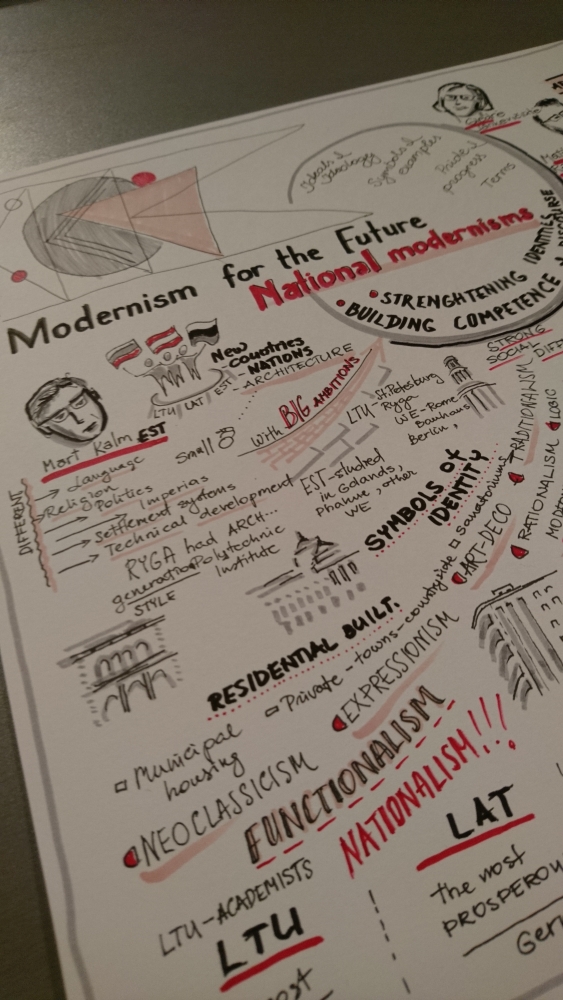 Ideals & ideology
Symbols & examples
Pride & progress
Terms
Modernism for the Future
National modernisms
STRENGHTENING IDENTITIES
BUILDING COMPETENCE & DISCOURSE
New
-countries
-NATIONS
-ARCHITECTURE
LTU LAT EST
Mart Kalm EST
Small
With BIG AMBITIONS
DIFFERENT
Language
Religion
Politics
Imperias
Settlement systems
Technical development
RYGA had ARCH...
generation Polytechnic
Institute
STYLE
LTU - St. Petesburg
- Ryga
WE - Rome
Bauhaus
Berlin,
EST - studied
in Gdansk,
other
WE
STRONG
SOCIAL
SYMBOLS of
IDENTITY
TRADITIONALISM
LOGIC
RATIONALISM
ART-DECO
RESIDENTIAL BUILT.
Private - towns - countryside
sanatoriums
EXPRESSIONISM
Municipal
housing
NEOCLASSICISM
FUNCTIONALISM
NATIONALISM!!!
LTU-ACADEMISTS
LTU
LAT
the most